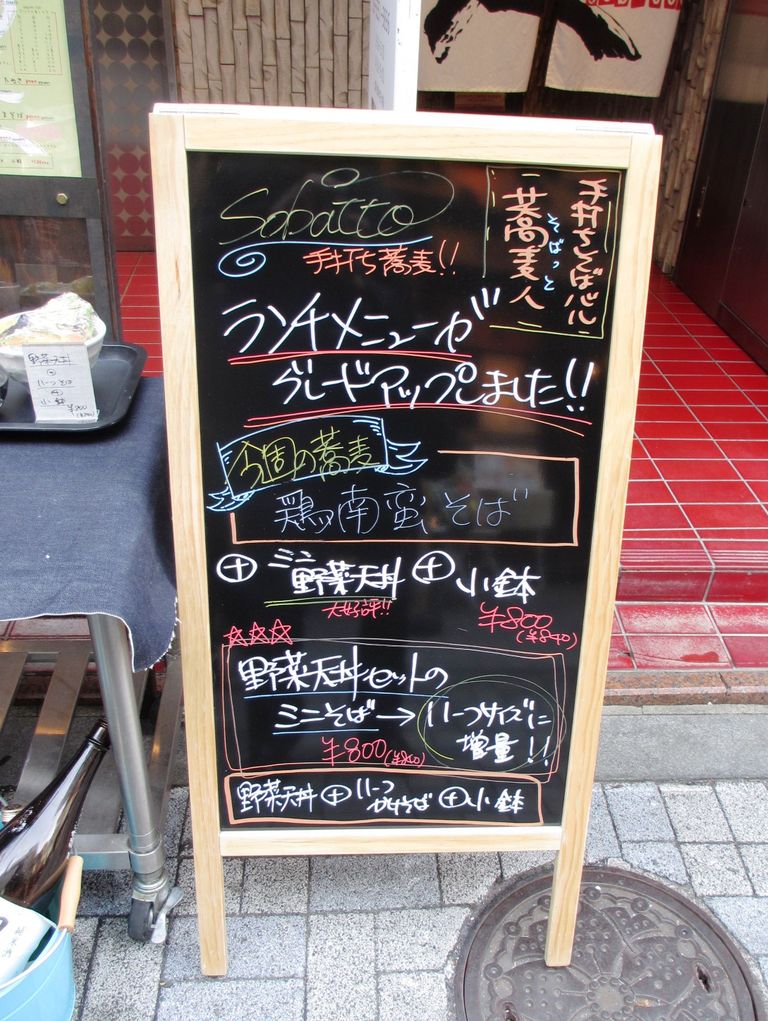 Sobatto
手打ち蕎麦!!
手打ちそばバル
蕎麦人
そばっと
ランチメニューが
グレードアップしました!!
今週の蕎麦
鶏南蛮そば
+ ミニ野菜天丼 + 小鉢
大好評!!
¥800(¥840)
☆☆☆
野菜天丼セットの
ミニそば→ハーフサイズに
増量!!
¥800(¥840)
野菜天丼+ハーフかけそば+小鉢
野菜天丼
+
ハーフそば
+
小鉢